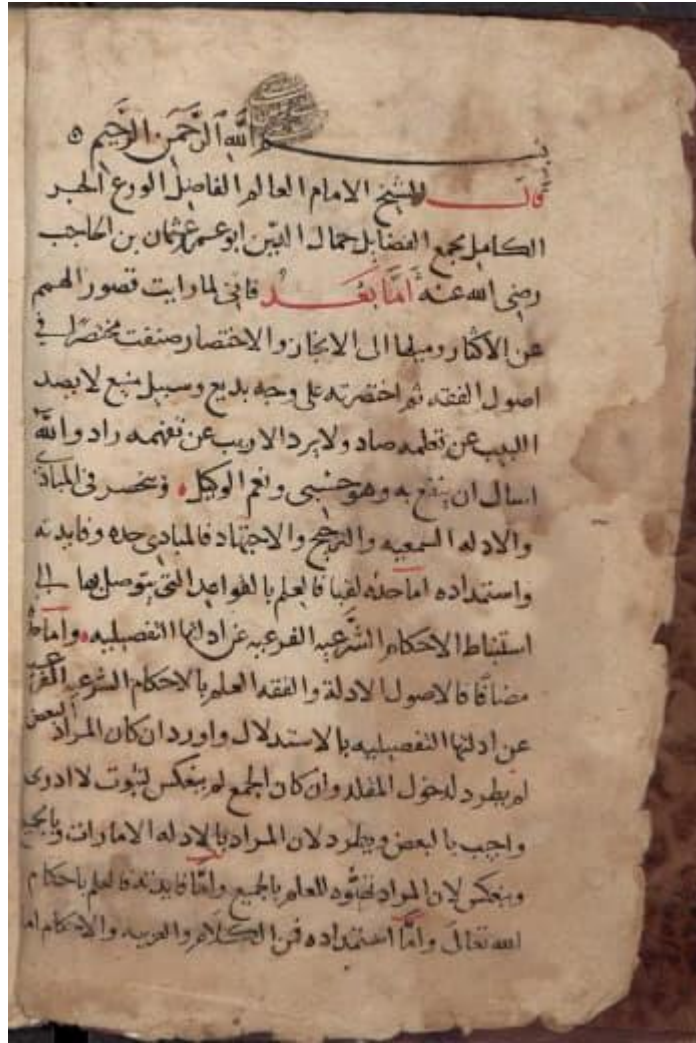 بسم الله الرحمن الرحيم
قال الشيخ الامام العالم الفاضل الورع الحبر
الكامل مجمع الفضايل جمال الدين ابو عمر عثمان بن الحاجب
رضى الله عنه اما بعد فانى لما رايت قصور الهمم
عن الاكثار وميلها الى الايجاز والاختصار صنفت مختصرا في
اصول الفقه ثم اختصرته على وجه بديع وسبيل منيع لا يصد
اللبيب عن تعلمه صاد ولا يرد الاريب عن تفهمه راد والله
اسال ان ينفع به وهو حسبى ونعم الوكيل وينحصر فى المبادى
والادله السمعيه والترجيح والاجتهاد فالمبادى حده وفايدته
واستمداده اما حده لقبا فالعلم بالقواعد التى يتوصل بها الى
استنباط الاحكام الشرعيه الفرعيه عن ادلتها التفصيليه واما حده
مضافا فالاصول الادلة والفقه العلم بالاحكام الشرعيه الفرعيه
عن ادلتها التفصيليه بالاستدلال واورد ان كان المراد البعض
لم يطرد لدخول المقلد وان كان الجمع لم ينعكس لثبوت لا ادرى
واجيب بالبعض ويطرد لان المراد بالادله الامارات وبالجميع
وينعكس لان المراد تهيؤه للعلم بالجميع واما فايدته فالعلم باحكام
الله تعالى واما استمداده فمن الكلام والعربيه والاحكام اما